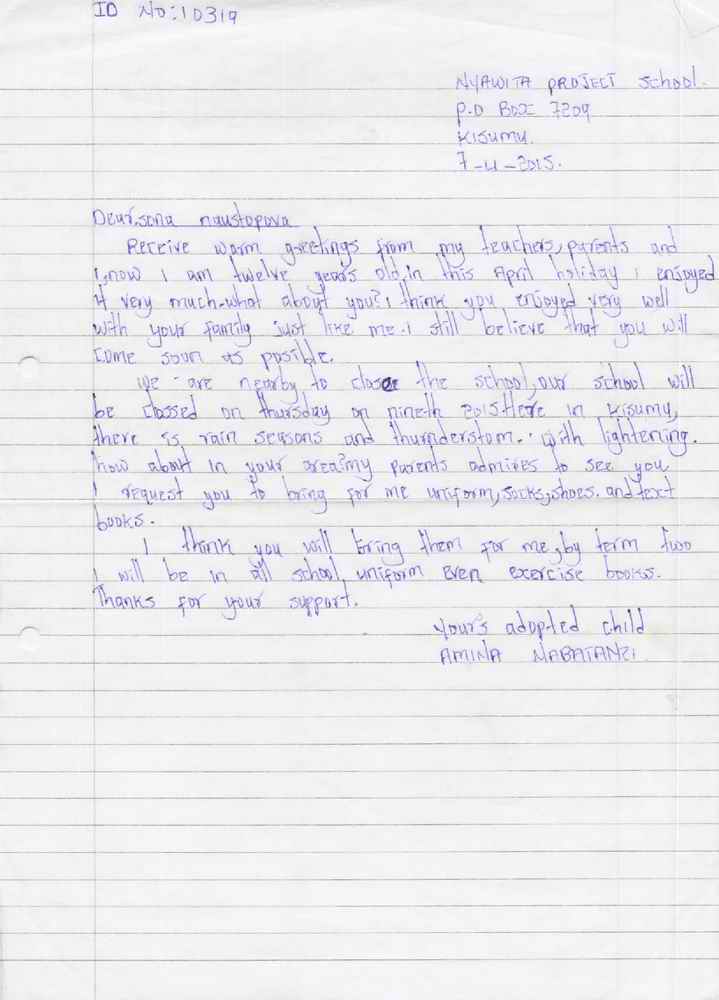 ID NO:10319
NYAWITA PROJECT School.
P.O BOX 7209
KISUMU.
7-4-2015.
Dear,sona naustopova
Receive warm greetings from my teachers, parents and
I,now I am twelve years old,in this April holiday I enjoyed
it very much.what about you?I think you enjoyed very well
with your family just like me.I still believe that you will
come soon as posible.
We are nearby to close the school,our school will
be closed on thursday on nineth 2015.Here in Kisumu,
there is rain seasons and thurnderstom.with lightening.
how about in your area?my parents admires to see you
I request you to bring for me uniform,socks,shoes.and text
books.
I think you will bring them for me,by term two
I will be in all school uniform even exercise books.
Thanks for your support.
Yours adopted child
AMINA NABATANZI.